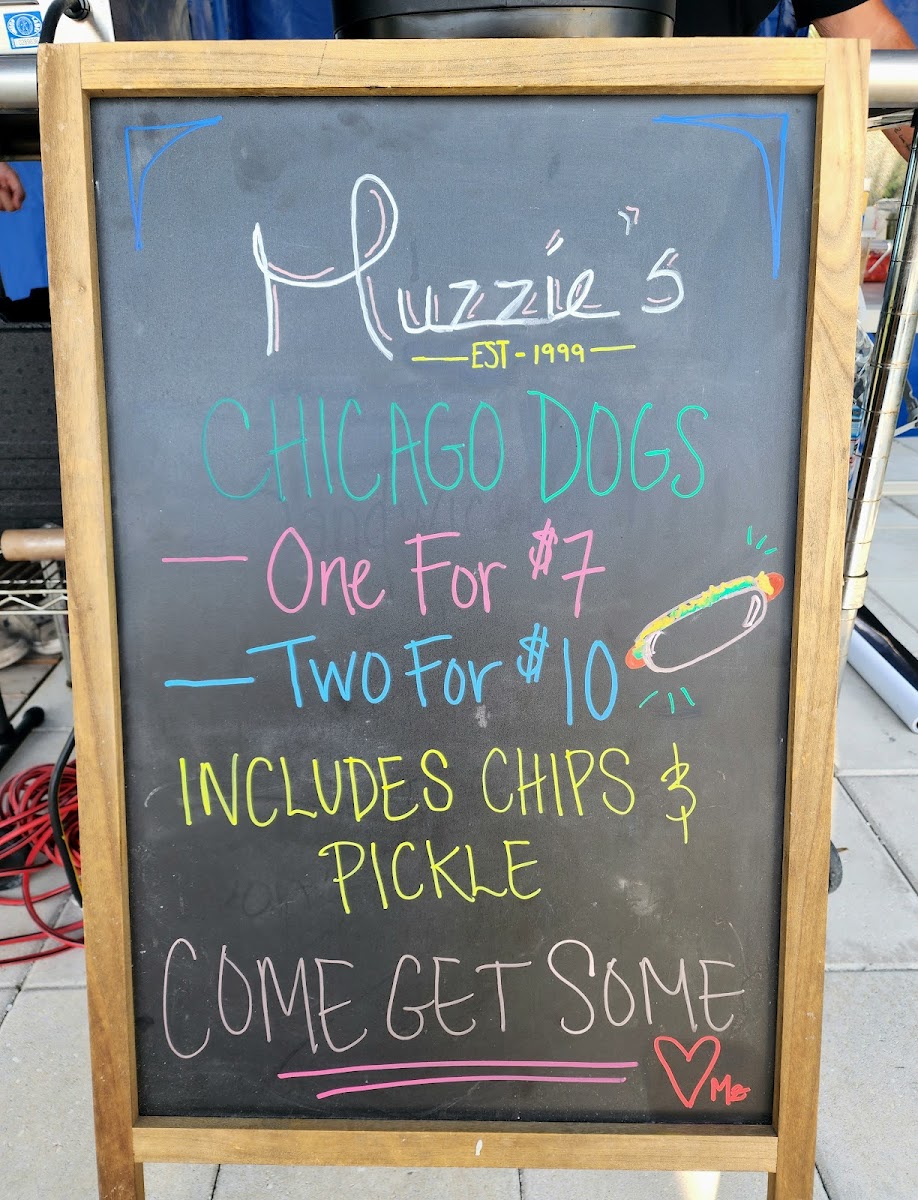 Muzzie's
EST - 1999
CHICAGO DOGS
— One For $7
— Two For $10
INCLUDES CHIPS &
PICKLE
COME GET SOME